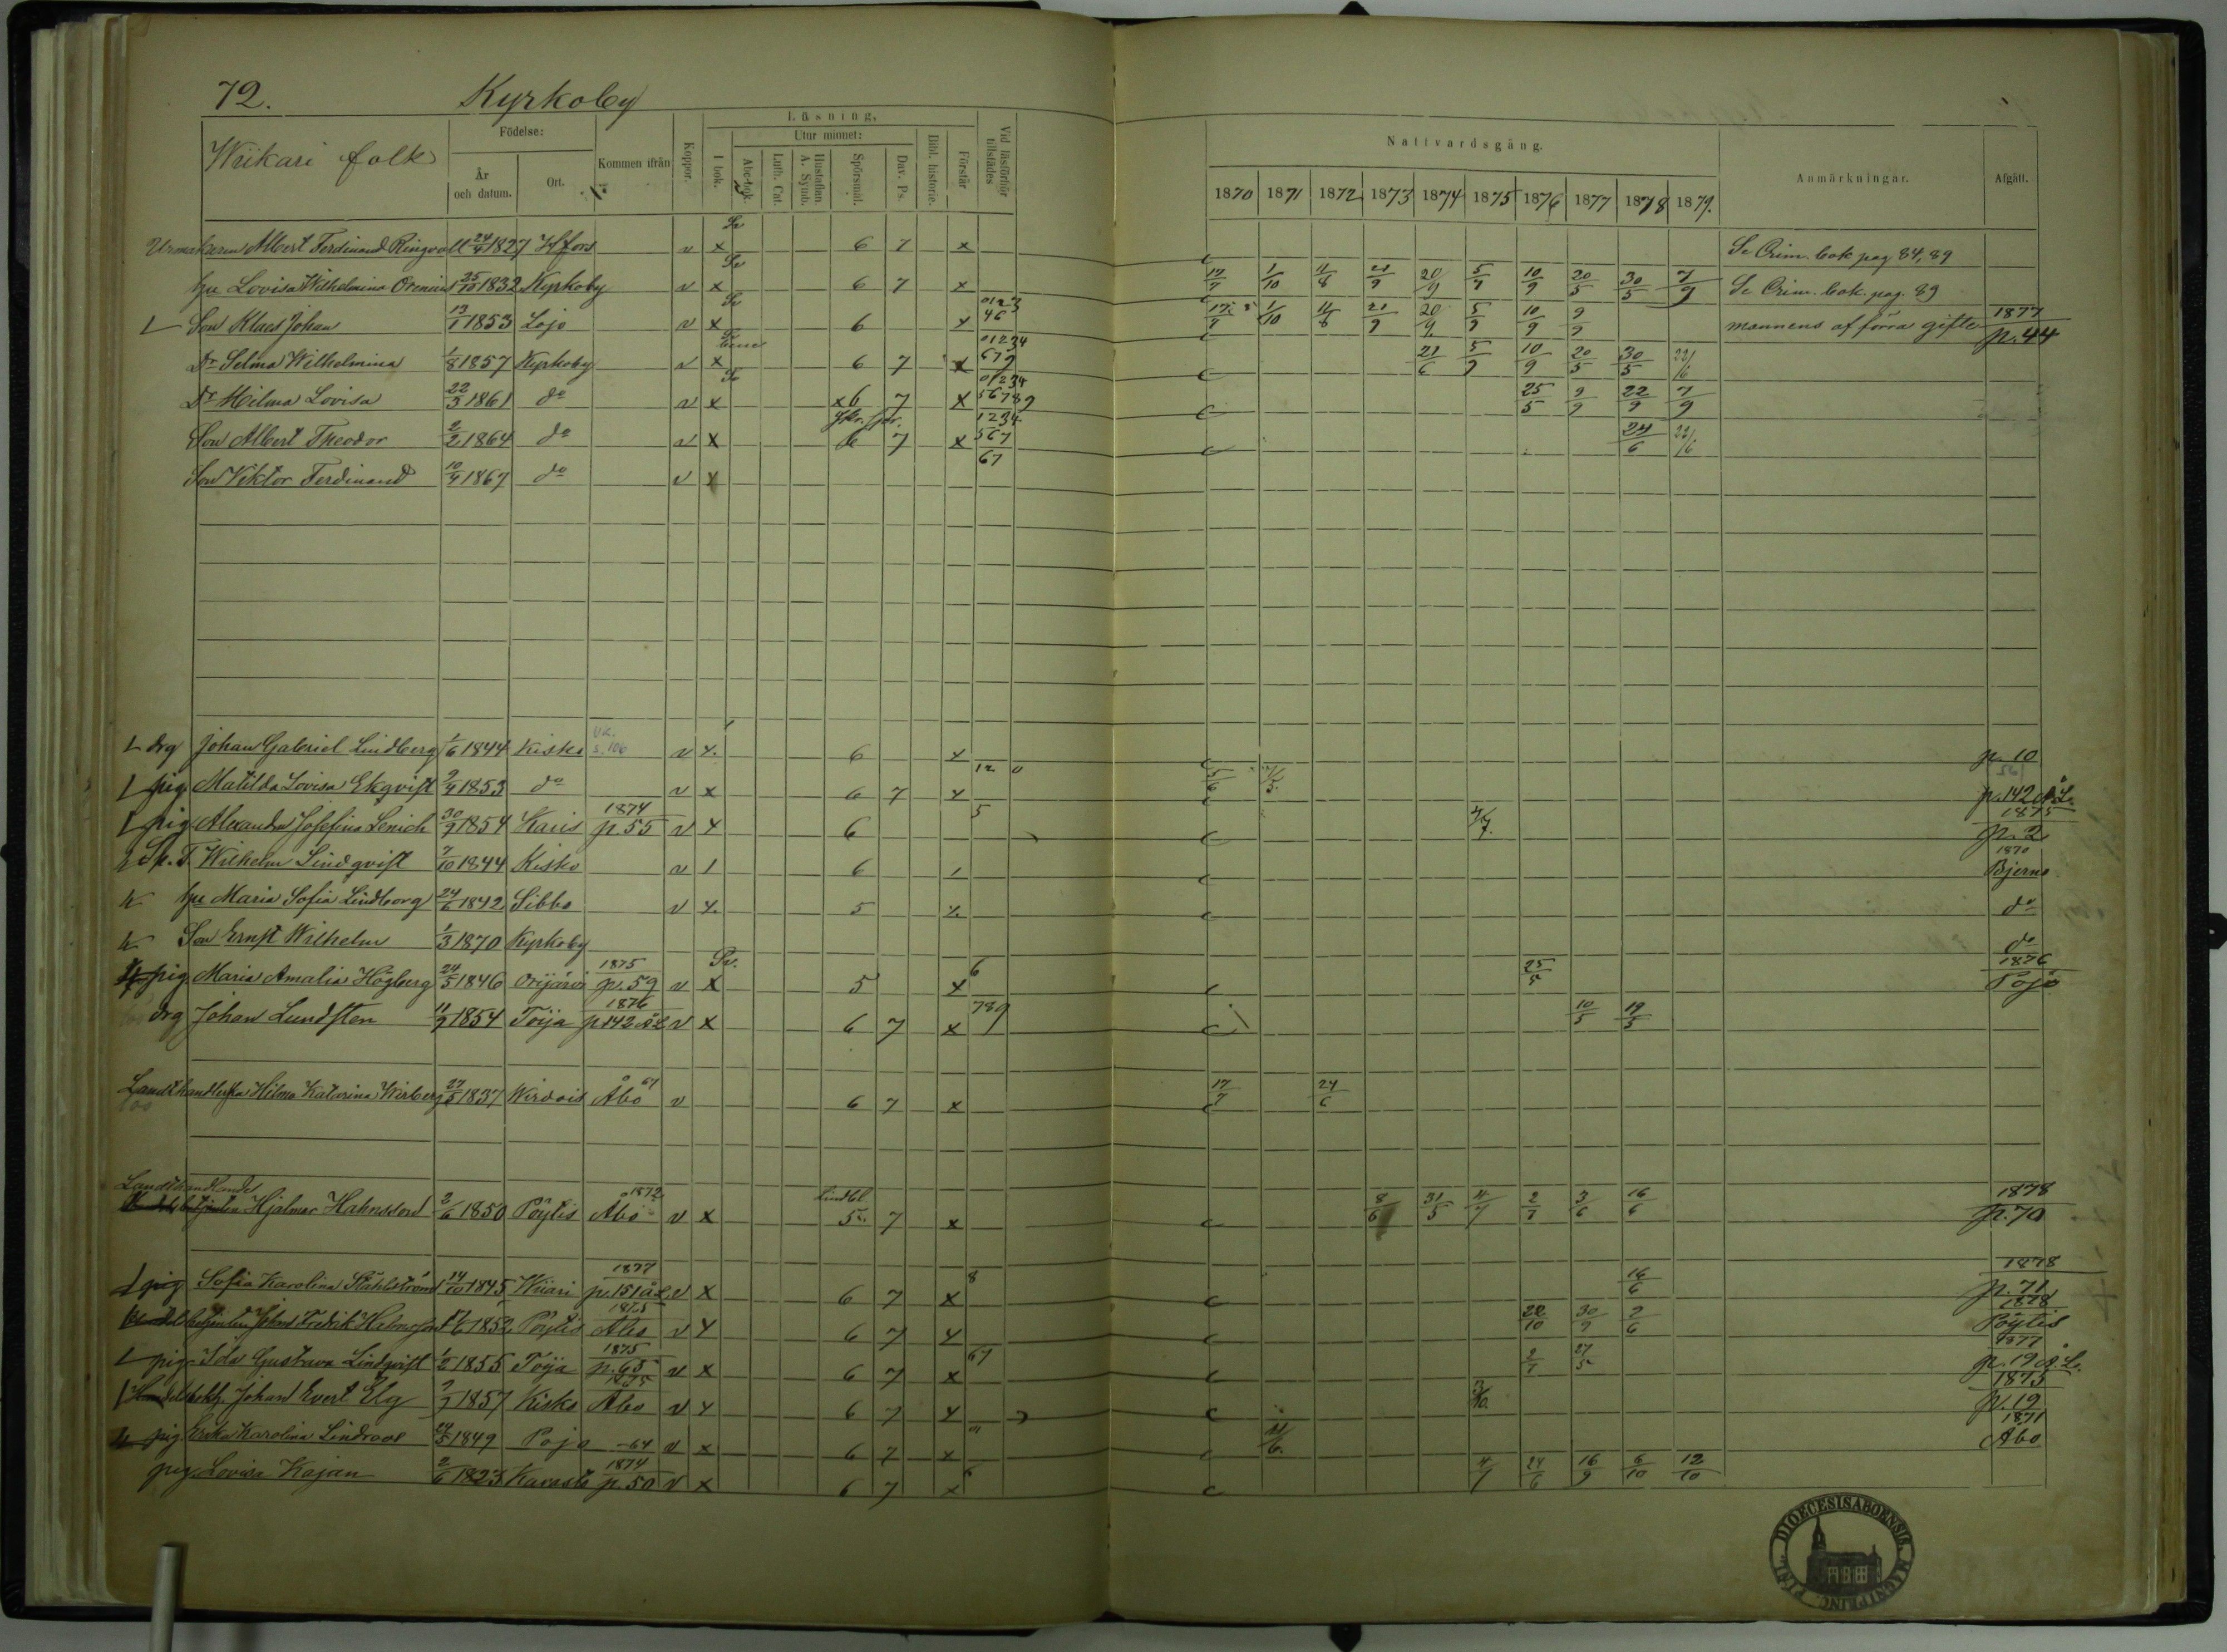 72. Kyrkoby
Wiikari folk
Födelse:
År och datum.
Ort.
Kommen ifrån
Koppor.
Läsning.
I bok.
Utur minnet:
Abc-bok.
Luth. Cat.
Hustaflan. A. Symb.
Spörsmål.
Dav. Ps.
Bibl. historie.
Förstår
Vid läsförhör tillstädes
Nattvardsgång.
1870 1871 1872 1873 1874 1875 1876 1877 1878 1879.
Anmärkningar.
Afgått.
Urmakaren Albert Ferdinand Ringvall 24/4 1827 Hfors v x Sv 6 7 x Se Crim. bok pag 84, 89
hu Lovisa Wilhelmina 25/10 1832 Kyrkoby v x Sv 6 7 x 1/10 11/8 21/9 20/9 5/9 10/9 20/5 30/5 7/9 Se Crim. bok. pag. 89
Son Klaes Johan 13/1 1853 Lojo v x Sv 6 x 0123 46 1/10 11/8 21/9 20/9 5/9 10/9 9/9 mannens af förra gifte 1877 p. 44
Dr Selma Wilhelmina 1/8 1857 Kyrkoby v x 6 7 x 01234 679 21/6 5/9 10/9 20/5 30/5 22/6
Dr Hilma Lovisa 22/3 1861 do v x Sv x6 7 x 01234 56789 25/5 9/9 22/9 7/9
Son Albert Theodor 2/2 1864 do v x 6 7 x 1234 567 24/6 22/6
Son Viktor Ferdinand 10/9 1867 do v x 67
drg Johan Gabriel Lindberg 1/6 1844 Kisko s. 106 v x. 6 x p. 10
pig Matilda Lovisa Ekqvist 2/4 1853 do v x 6 7 x 12 0 5/6 p. 142 Å.L.
pig Alexandra Josefina Lenich 30/9 1854 Karis 1874 p. 55 v x 6 5 4/7. 1875 p. 2
Sk. F. Wilhelm Lindqvist 7/10 1844 Kisko v 1 6 1 1870 Bjerno
hu Maria Sofia Lindborg 24/6 1842 Sibbo v x. 5 x. do
Son Ernst Wilhelm 1/3 1870 Kyrkoby do
pig Maria Amalia Högberg 24/5 1846 Orijärvi 1875 p. 59 v x Sv. 5 x 6 25/5 1876 Pojo
drg Johan Lundsten 11/9 1854 Toija 1876 p. 142 ÅL v x 6 7 x 789 10/5 19/5
Landthandlerska Hilma Katarina Wirberg 27/5 1837 Wirdois Åbo 61 v 6 7 x 17/7 24/6
Landthandlande
Hjalmar Hahnsson 2/6 1850 Pöytis 1872 Åbo v x Lindbl 5 7 x 8/6 31/5 4/7 2/7 3/6 16/6 1878 p. 70
pig Sofia Karolina Ståhlström 14/10 1845 Wiiari 1877 p. 151 ÅL v x 6 7 x 8 16/6 1878 p. 71
Fredrik 1852 Pöytis 1875 Åbo v x 6 7 x 22/10 30/9 2/6 1878 Pöytis
pig Ida Gustava Lindqvist 1/2 1855 Toija 1875 p. 65 v x 6 7 x 67 2/7 27/5 1877 p. 19 Å.L.
Handelsbetj. Johan Evert Elg 7/7 1857 Kisko 1875 Åbo v x 6 7 x 3/10. 1875 p. 19
pig Erika Karolina Lindroos 24/5 1849 Pojo -64 v x 6 7 x 01 21/6. 1871 Åbo
pig Lovisa Kajan 2/6 1823 Karasto 1874 p. 50 v x 6 7 x 6 4/7 24/6 16/9 6/10 12/10
DIOECESIS ABOENSIS